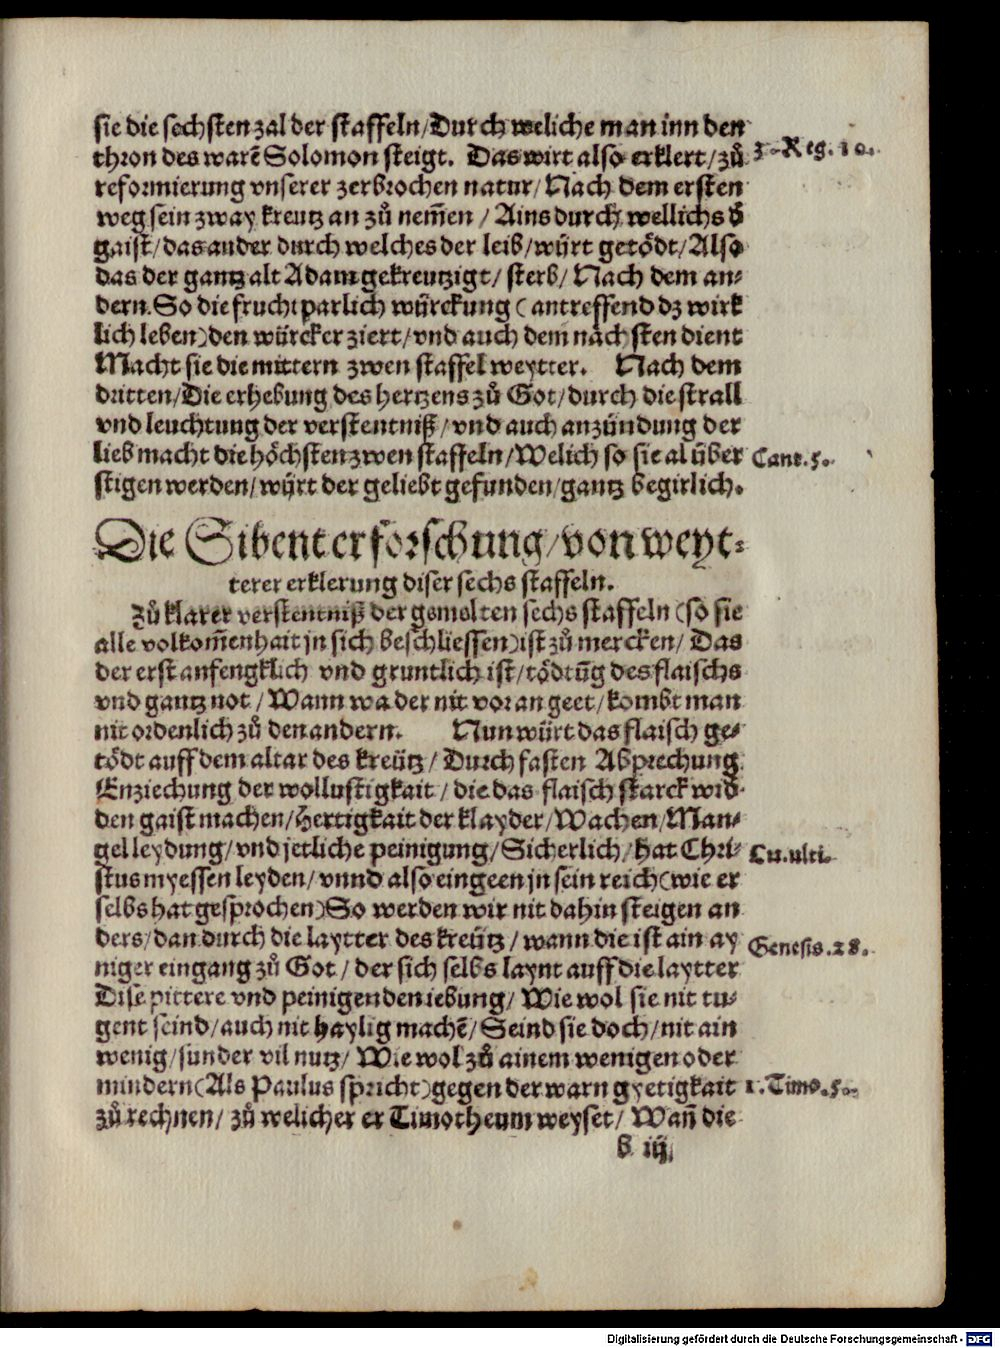 sie die sechsten zal der staffeln/Durch weliche man inn den
thron des warẽ Solomon steigt. Das wirt also erklert/zů 3. Reg. 10.
reformierung vnserer zerbrochen natur/Nach dem ersten
weg sein zway kreutz an zů nem̃en / Ains durch wellichs d̕
gaist/das ander durch welches der leib/würt getödt/Also
das der gantz alt Adam gekreutzigt/ sterb/ Nach dem an-
dern. So die fruchtparlich würckung (antreffend dz wirk
lich leben) den würcker ziert/vnd auch dem nächsten dient
Macht sie die mittern zwen staffel weytter. Nach dem
dritten/Die erhebung des hertzens zů Got/durch die strall
vnd leuchtung der verstentniß/vnd auch anzündung der
lieb macht die höchsten zwen staffeln/Welich so sie al über Cant. 5.
stigen werden/würt der geliebt gefunden/gantz begirlich.
Die Sibent erforschung/von weyt-
terer erklerung diser sechs staffeln.
Zů klarer verstentniß der gemelten sechs staffeln (so sie
alle volkom̃enhait jn sich beschliessen) ist zů mercken/Das
der erst anfengklich vnd gruntlich ist/tödtũg des flaischs
vnd gantz not/Wann wa der nit voran geet/kombt man
nit ordenlich zů den andern. Nun würt das flaisch ge-
tödt auff dem altar des kreütz/Durch fasten Abprechung
Enziechung der wollustigkait/die das flaisch starck wid̕
den gaist machen/Hertigkait der klayder/Wachen/Man-
gel leydung/vnd jetliche peinigung/Sicherlich/hat Chri- Lu. ulti.
stus myessen leyden/vnnd also eingeen jn sein reich (wie er
selbs hat gesprochen) So werden wir nit dahin steigen an
ders/dan durch die laytter des kreütz/wann die ist ain ay Genesis. 28.
niger eingang zů Got/der sich selbs laynt auff die laytter
Dise pittere vnd peinigenden iebung/Wie wol sie nit tu-
gent seind/auch nit haylig machẽ/Seind sie doch/nit ain
wenig/sunder vil nutz/Wie wol zů ainem wenigen oder
mindern (Als Paulus spricht) gegen der warn gyetigkait 1. Timo. 5.
zů rechnen/zů welicher er Timotheum weyset/Wañ die
b iij
Digitalisierung gefördert durch die Deutsche Forschungsgemeinschaft - DFG